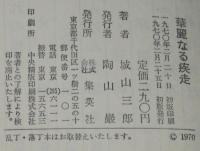 華麗なる疾走
一九七〇年二月二十日 初版印刷
一九七〇年二月二十五日 初版発行
定価二九〇円
著者 城山三郎
発行者 陶山巌
発行所 株式会社 集英社
東京都千代田区一ツ橋二の五の十
郵便番号 一〇一
電話 東京(265)六一一一
振替 東京 五六五三
印刷所 中央精版印刷株式会社
著者との了解により検
印を廃止いたします。
乱丁・落丁本はお取替えいたします。
© 1970